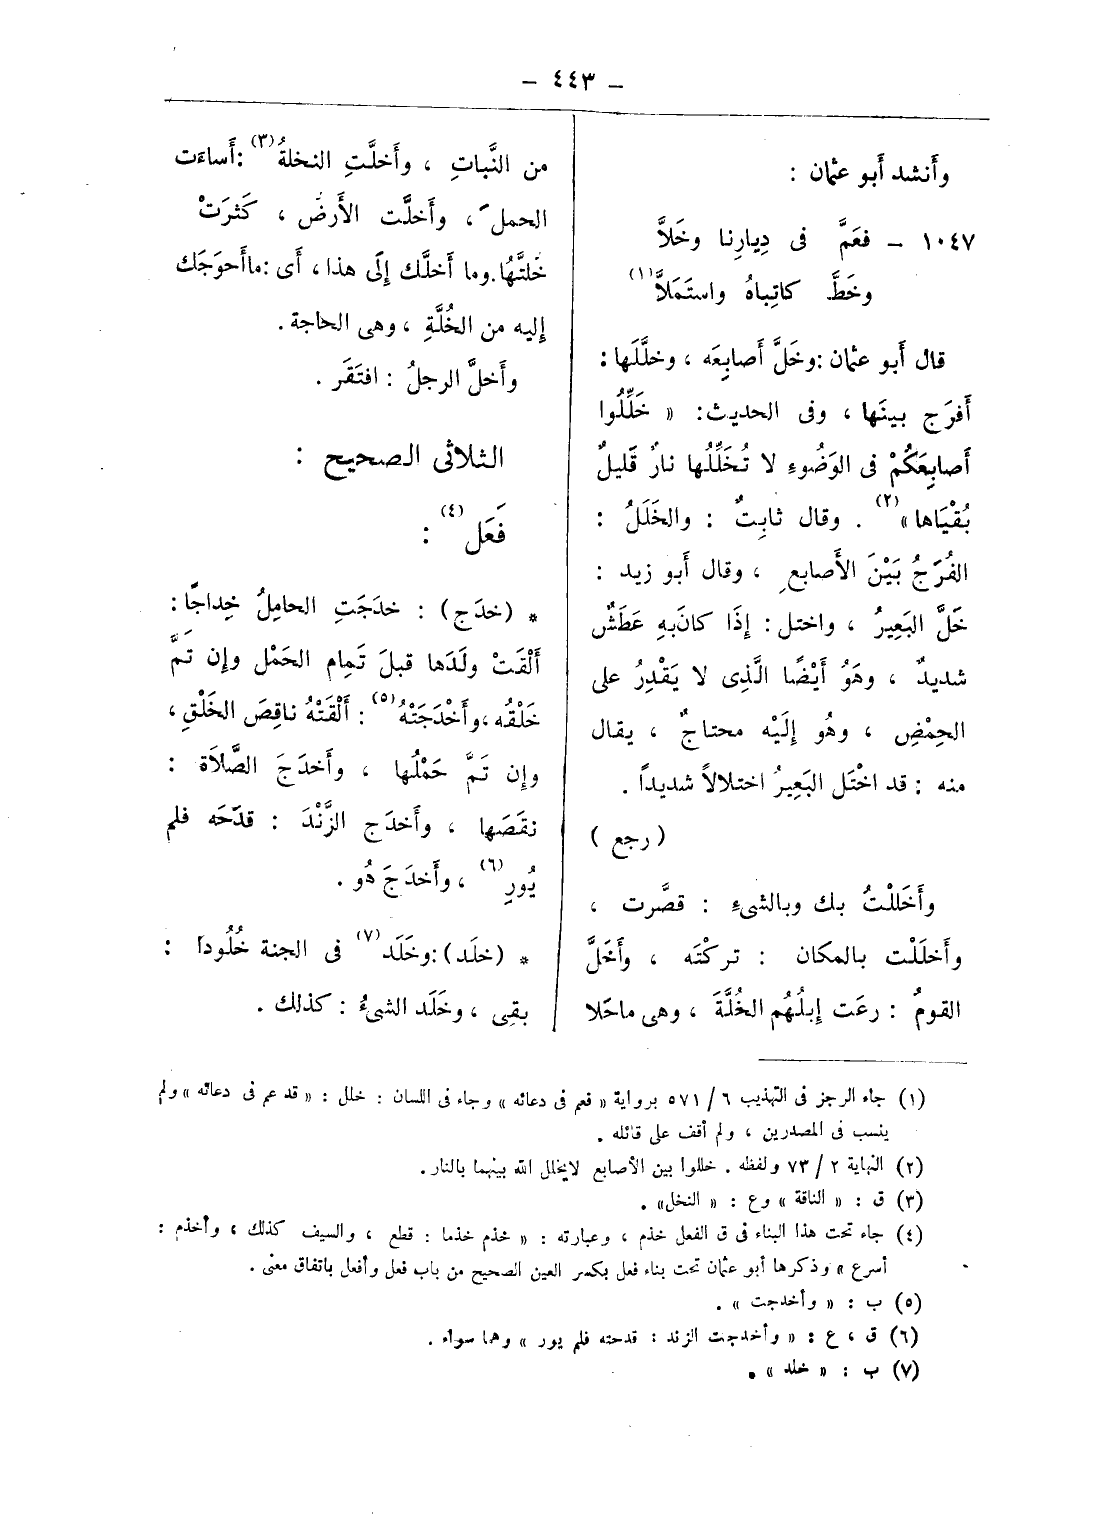 – ٤٤٣ –
وأَنشد أَبو عثمان :
١٠٤٧ – فَعَمَّ فى دِيارِنا وخَلاَّ
وخَطَّ كاتِباهُ واستَمَلاَّ (١)
قال أَبو عثمان : وخَلَّ أَصابِعَه ، وخلَّلَها :
أَفرَج بينَها ، وفى الحديث : « خَلِّلُوا
أَصابِعَكُمْ فى الوَضُوءِ لا تُخَلِّلُها نارٌ قَليلٌ
بُقْيَاها » (٢) . وقال ثابِتٌ : والخَلَلُ :
الفُرَجُ بَيْنَ الأَصابع ِ ، وقال أَبو زيد :
خَلَّ البَعِيرُ ، واختل : إِذَا كانَ بِهِ عَطَشٌ
شديدٌ ، وهَوُ أَيْضًا الَّذِى لا يَقْدِرُ على
الحِمْضِ ، وهُو إِلَيْه محتاجٌ ، يقال
منه : قد اخْتَل البَعِيرُ اختلالاً شديداً .
( رجع )
وأَخَللْتُ بك وبالشىءِ : قصَّرت ،
وأَخلَلْت بالمكان : تركْتَه ، وأَخَلَّ
القومُ : رعَت إِبلُهُم الخُلَّةَ ، وهى ماحَلا
من النَّباتِ ، وأَخلَّتِ النخلةُ (٣) : أَساءَت
الحملَ ، وأَخلَّت الأَرضُ ، كَثرَتْ
خُلتَّهُا . وما أَخلَّك إِلَى هذا ، أَى : ماأَحوَجَك
إِليه من الخُلَّةِ ، وهى الحاجة .
وأَخلَّ الرجلُ : افتَقَر .
الثلاثى الصحيح :
فَعَل (٤) :
* (خدَج) : خدَجَتِ الحامِلُ خِداجًا :
أَلْقَتْ ولَدَها قبلَ تَمامِ الحَمْل وإن تَمَّ
خَلْقُه ، وأَخْدَجَتْهُ (٥) : أَلْقَتْهُ ناقِصَ الخَلْقِ ،
وإن تَمَّ حَمْلُها ، وأَخدَجَ الصَّلاَةَ :
نقَصَها ، وأَخدَج الزَّنْدَ : قدَحَه فلم
يُورِ (٦) ، وأَخدَجَ هُو .
* (خلَد) : وخَلَد (٧) فى الجنة خُلُوداً :
بقِى ، وخَلَد الشىءُ : كذلك .
(١) جاء الرجز فى التهذيب ٦ / ٥٧١ برواية « فعم فى دعائه » وجاء فى اللسان : خلل : « قد عم فى دعائه » ولم
ينسب فى المصدرين ، ولم أقف على قائله .
(٢) النهاية ٢ / ٧٣ ولفظه . خللوا بين الأصابع لايخلل الله بينهما بالنار .
(٣) ق : « الناقة » وع : « النخل » .
(٤) جاء تحت هذا البناء فى ق الفعل خذم ، وعبارته : « خذم خذما : قطع ، والسيف كذلك ، وأخذم :
أسرع » وذكرها أبو عثمان تحت بناء فعل بكسر العين الصحيح من باب فعل وأفعل باتفاق معنى .
(٥) ب : « وأخدجت » .
(٦) ق ، ع : « وأخدجت الزند : قدحته فلم يور » وهما سواء .
(٧) ب : « خلد » .